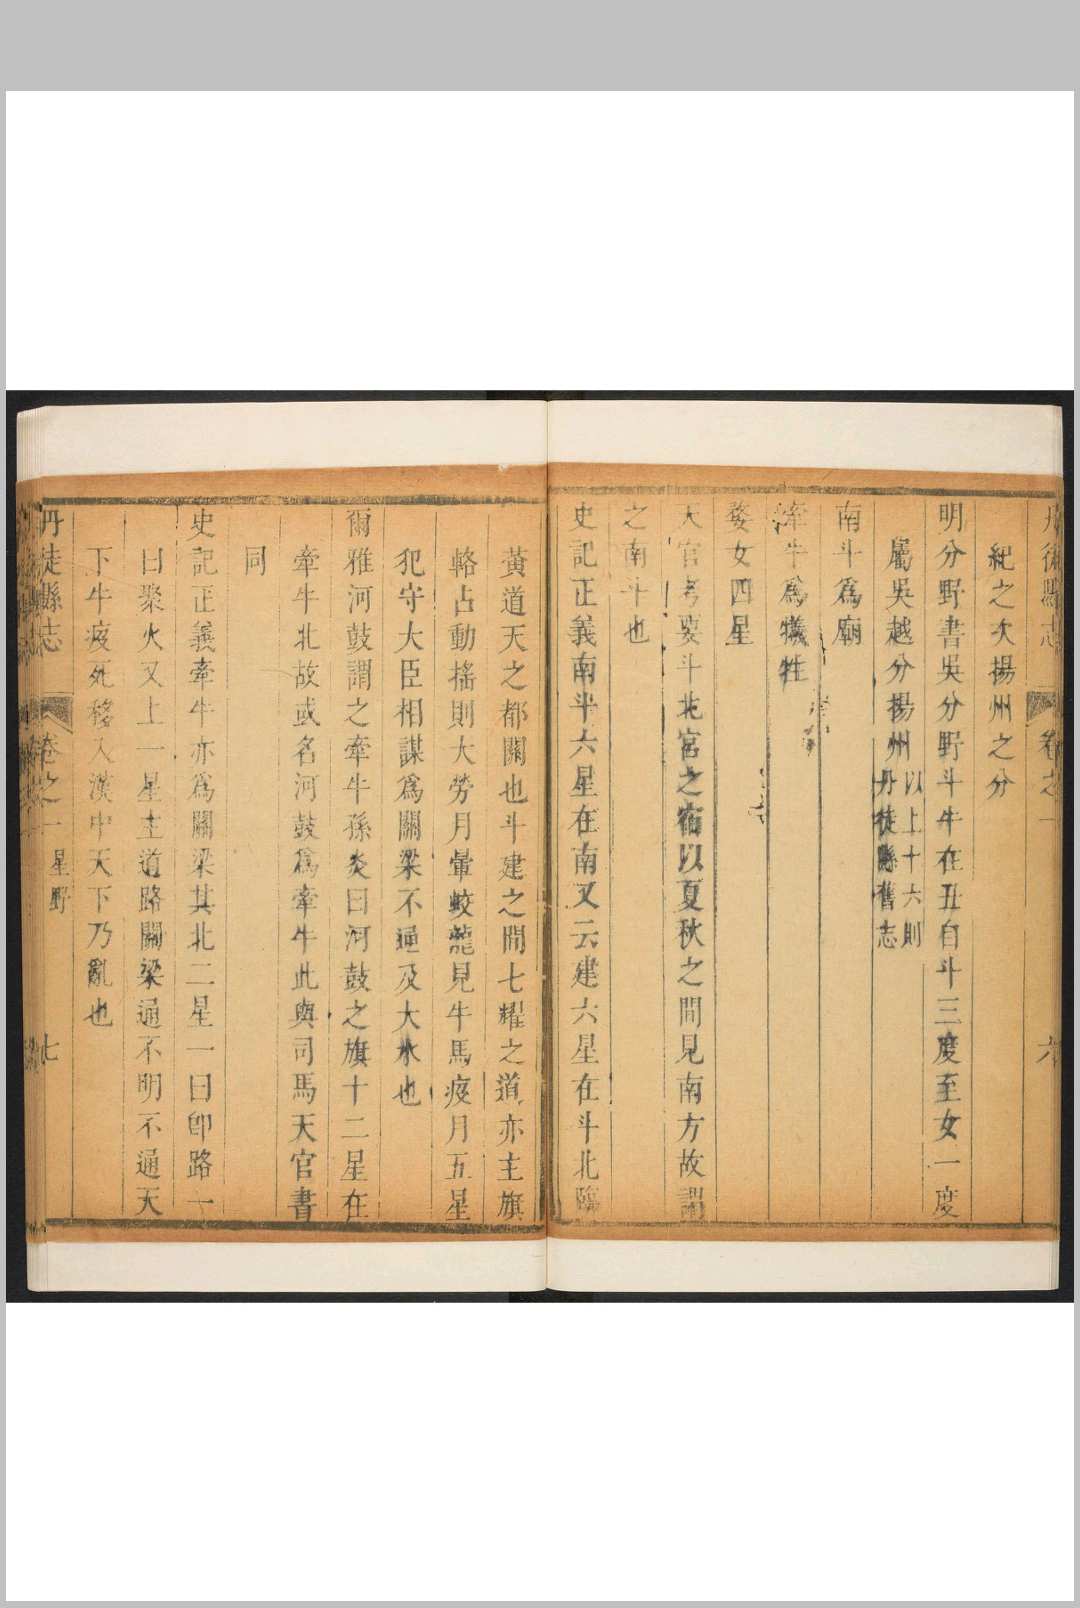 丹徒縣志 卷之一 六
紀之次揚州之分
明分野書吳分野斗牛在丑自斗三度至女一度
屬吳越分揚州以上十六則
丹徒縣舊志
南斗爲廟
牽牛爲犧牲
婺女四星
天官考要斗北宮之宿以夏秋之間見南方故謂
之南斗也
史記正義南斗六星在南又云建六星在斗北臨
黃道天之都關也斗建之間七耀之道亦主旗
輅占動搖則大勞月暈蛟龍見牛馬疫月五星
犯守大臣相謀爲關梁不通及大水也
爾雅河鼓謂之牽牛孫炎曰河鼓之旗十二星在
牽牛北故或名河鼓爲牽牛此與司馬天官書
同
史記正義牽牛亦爲關梁其北二星一曰卽路一
曰聚火又上一星主道路關梁通不明不通天
下牛疫死移入漢中天下乃亂也
丹徒縣志 卷之一 星野 七